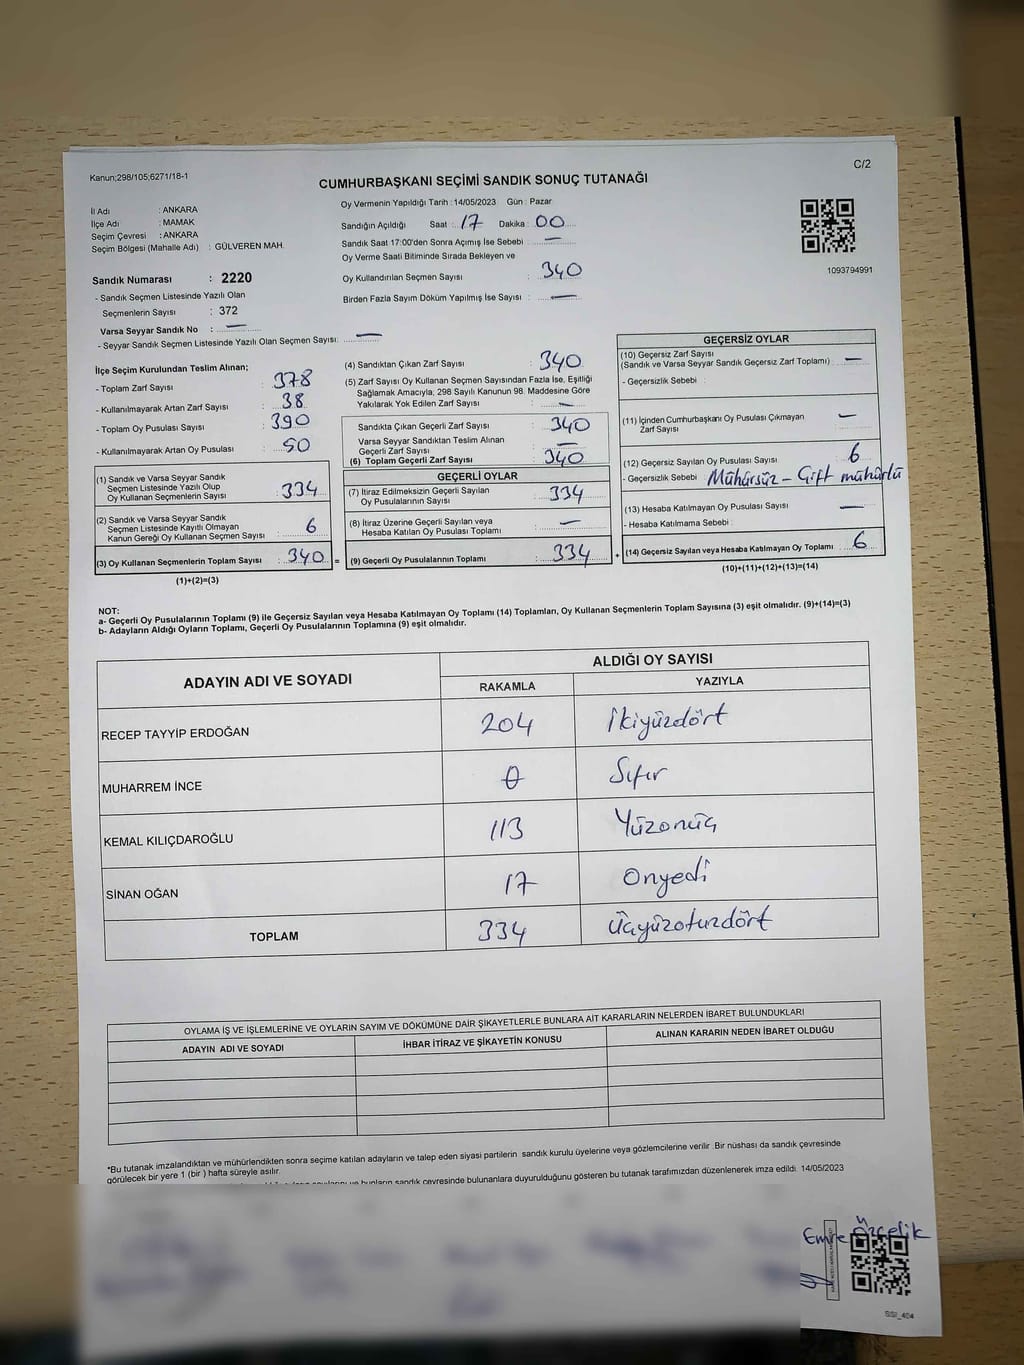 Kanun;298/105;6271/18-1
C/2
CUMHURBAŞKANI SEÇİMİ SANDIK SONUÇ TUTANAĞI
İl Adı : ANKARA
İlçe Adı : MAMAK
Seçim Çevresi : ANKARA
Seçim Bölgesi (Mahalle Adı) : GÜLVEREN MAH.
Sandık Numarası : 2220
- Sandık Seçmen Listesinde Yazılı Olan
Seçmenlerin Sayısı : 372
Varsa Seyyar Sandık No : —
- Seyyar Sandık Seçmen Listesinde Yazılı Olan Seçmen Sayısı: —
Oy Vermenin Yapıldığı Tarih : 14/05/2023 Gün : Pazar
Sandığın Açıldığı Saat : 17 Dakika : 00
Sandık Saat 17:00'den Sonra Açımış İse Sebebi : —
Oy Verme Saati Bitiminde Sırada Bekleyen ve
Oy Kullandırılan Seçmen Sayısı : 340
Birden Fazla Sayım Döküm Yapılmış İse Sayısı : —
1093794991
İlçe Seçim Kurulundan Teslim Alınan;
- Toplam Zarf Sayısı : 378
- Kullanılmayarak Artan Zarf Sayısı : 38
- Toplam Oy Pusulası Sayısı : 390
- Kullanılmayarak Artan Oy Pusulası : 50
(1) Sandık ve Varsa Seyyar Sandık
Seçmen Listesinde Yazılı Olup
Oy Kullanan Seçmenlerin Sayısı : 334
(2) Sandık ve Varsa Seyyar Sandık
Seçmen Listesinde Kayıtlı Olmayan
Kanun Gereği Oy Kullanan Seçmen Sayısı : 6
(3) Oy Kullanan Seçmenlerin Toplam Sayısı : 340 =
(1)+(2)=(3)
(4) Sandıktan Çıkan Zarf Sayısı : 340
(5) Zarf Sayısı Oy Kullanan Seçmen Sayısından Fazla İse, Eşitliği
Sağlamak Amacıyla, 298 Sayılı Kanunun 98. Maddesine Göre
Yakılarak Yok Edilen Zarf Sayısı : —
Sandıkta Çıkan Geçerli Zarf Sayısı : 340
Varsa Seyyar Sandıktan Teslim Alınan
Geçerli Zarf Sayısı : —
(6) Toplam Geçerli Zarf Sayısı : 340
GEÇERLİ OYLAR
(7) İtiraz Edilmeksizin Geçerli Sayılan
Oy Pusulalarının Sayısı : 334
(8) İtiraz Üzerine Geçerli Sayılan veya
Hesaba Katılan Oy Pusulası Toplamı : —
(9) Geçerli Oy Pusulalarının Toplamı : 334 +
GEÇERSİZ OYLAR
(10) Geçersiz Zarf Sayısı
(Sandık ve Varsa Seyyar Sandık Geçersiz Zarf Toplamı) : —
- Geçersizlik Sebebi :
(11) İçinden Cumhurbaşkanı Oy Pusulası Çıkmayan
Zarf Sayısı : —
(12) Geçersiz Sayılan Oy Pusulası Sayısı : 6
- Geçersizlik Sebebi : Mühürsüz - Çift mühürlü
(13) Hesaba Katılmayan Oy Pusulası Sayısı : —
- Hesaba Katılmama Sebebi :
(14) Geçersiz Sayılan veya Hesaba Katılmayan Oy Toplamı : 6
(10)+(11)+(12)+(13)=(14)
NOT:
a- Geçerli Oy Pusulalarının Toplamı (9) ile Geçersiz Sayılan veya Hesaba Katılmayan Oy Toplamı (14) Toplamları, Oy Kullanan Seçmenlerin Toplam Sayısına (3) eşit olmalıdır. (9)+(14)=(3)
b- Adayların Aldığı Oyların Toplamı, Geçerli Oy Pusulalarının Toplamına (9) eşit olmalıdır.
ADAYIN ADI VE SOYADI
ALDIĞI OY SAYISI
RAKAMLA YAZIYLA
RECEP TAYYİP ERDOĞAN 204 İkiyüzdört
MUHARREM İNCE 0 Sıfır
KEMAL KILIÇDAROĞLU 113 Yüzonüç
SİNAN OĞAN 17 Onyedi
TOPLAM 334 Üçyüzotuzdört
OYLAMA İŞ VE İŞLEMLERİNE VE OYLARIN SAYIM VE DÖKÜMÜNE DAİR ŞİKAYETLERLE BUNLARA AİT KARARLARIN NELERDEN İBARET BULUNDUKLARI
ADAYIN ADI VE SOYADI İHBAR İTİRAZ VE ŞİKAYETİN KONUSU ALINAN KARARIN NEDEN İBARET OLDUĞU
*Bu tutanak imzalandıktan ve mühürlendikten sonra seçime katılan adayların ve talep eden siyasi partilerin sandık kurulu üyelerine veya gözlemcilerine verilir .Bir nüshası da sandık çevresinde
görülecek bir yere 1 (bir ) hafta süreyle asılır.
ve bunların sandık çevresinde bulunanlara duyurulduğunu gösteren bu tutanak tarafımızdan düzenlenerek imza edildi. 14/05/2023
Emre Özçelik
SSI_404